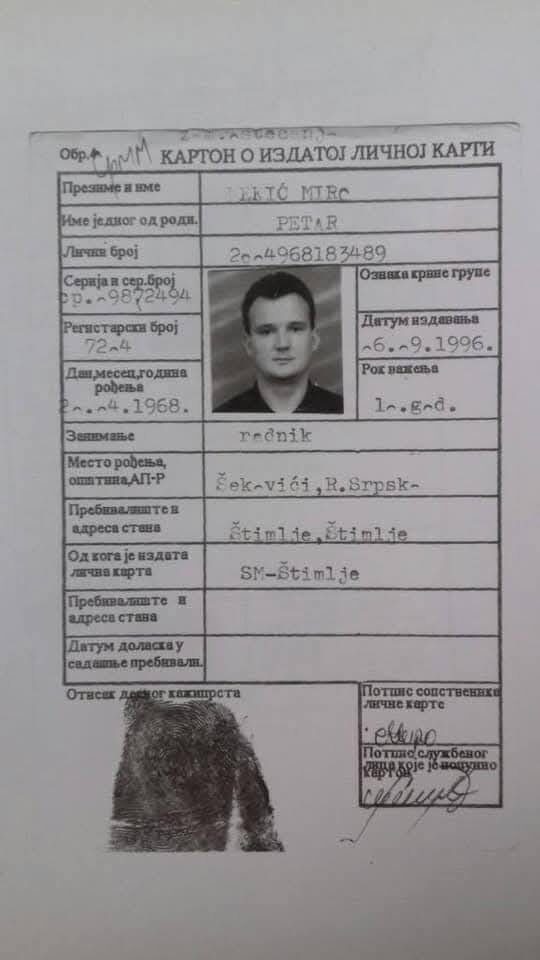 Обр.
КАРТОН О ИЗДАТОЈ ЛИЧНОЈ КАРТИ
Презиме и име
MIRO
Име једног од роди. PETAR
Лични број 2o-4968183489
Серија и сер.број
-9872494
Ознака крвне групе
Регистарски број
72-4
Датум издавања
-6.-9.1996.
Дан,месец,година
рођења
2-.-4.1968.
Рок важења
1-.g-d.
Занимање radnik
Место рођења,
општина,АП-Р Šek-vići,R.Srpsk-
Пребивалиште и
адреса стана Štimlje,Štimlje
Од кога је издата
лична карта SM-Štimlje
Пребивалиште и
адреса стана
Датум доласка у
садашње пребивали.
Отисак десног кажипрста
Потпис сопственика
личне карте
Миро
Потпис службеног
лица које је попунио
картон